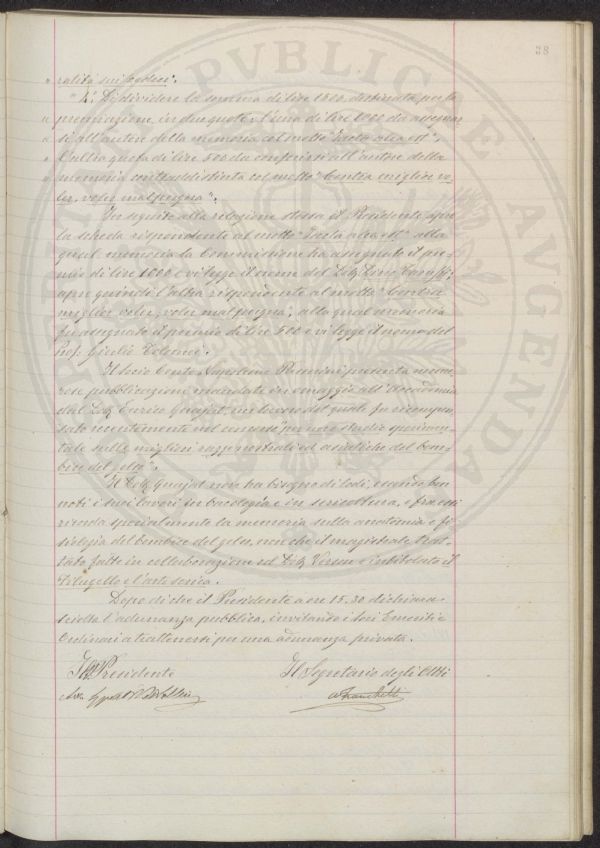 38
" "
" 2.° Di dividere la somma di lire 1500, destinata per la
" premiazione in due quote: l'una di lire 1000 da assegnar
" si all'autore della memoria col motto "
" l'altra quota di lire 500 da conferirsi all'autore della
" memoria contraddistinta col motto "Contra miglior vo
ler, voler mal pugna".
In seguito alla relazione stessa il Presidente apre
la scheda rispondente al motto " alla
qual memoria la Commissione ha assegnato il pre
mio di lire 1000 e vi legge il nome del Dott.
apre quindi l'altra rispondente al motto "Contra
miglior voler, voler mal pugna", alla qual memoria
fu assegnato il premio di lire 500 e vi legge il nome del
Prof. Giulio
Il socio Conte Napoleone presenta nume
rose pubblicazioni mandate in omaggio all'Accademia
dal Dott. Enrico Quajat, un lavoro del quale fu
recentemente nel "
tale sulle migliori razze nostrali ed asiatiche del bom
bice del gelso".
Il Dott. Quajat non ha bisogno di lodi, essendo ben
noti i suoi lavori in bacologia e in sericoltura, e fra essi
ricorda specialmente la memoria sulla anatomia e fi
siologia del bombice del gelso, non che il magistrale trat
tato fatto in collaborazione col Dott. Verson e intitolato il
Filugello e l'arte serica.
Dopo di che il Presidente a ore 15.30 dichiara
sciolta l'adunanza pubblica, invitando i Soci Emeriti e
Ordinari a trattenersi per una adunanza privata.
Il Presidente Il Segretario degli Atti
PVBLICAE AVGENDA